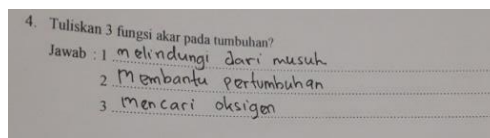 4. Tuliskan 3 fungsi akar pada tumbuhan?
Jawab : 1 melindungi dari musuh
2 Membantu pertumbuhan
3 Mencari oksigen